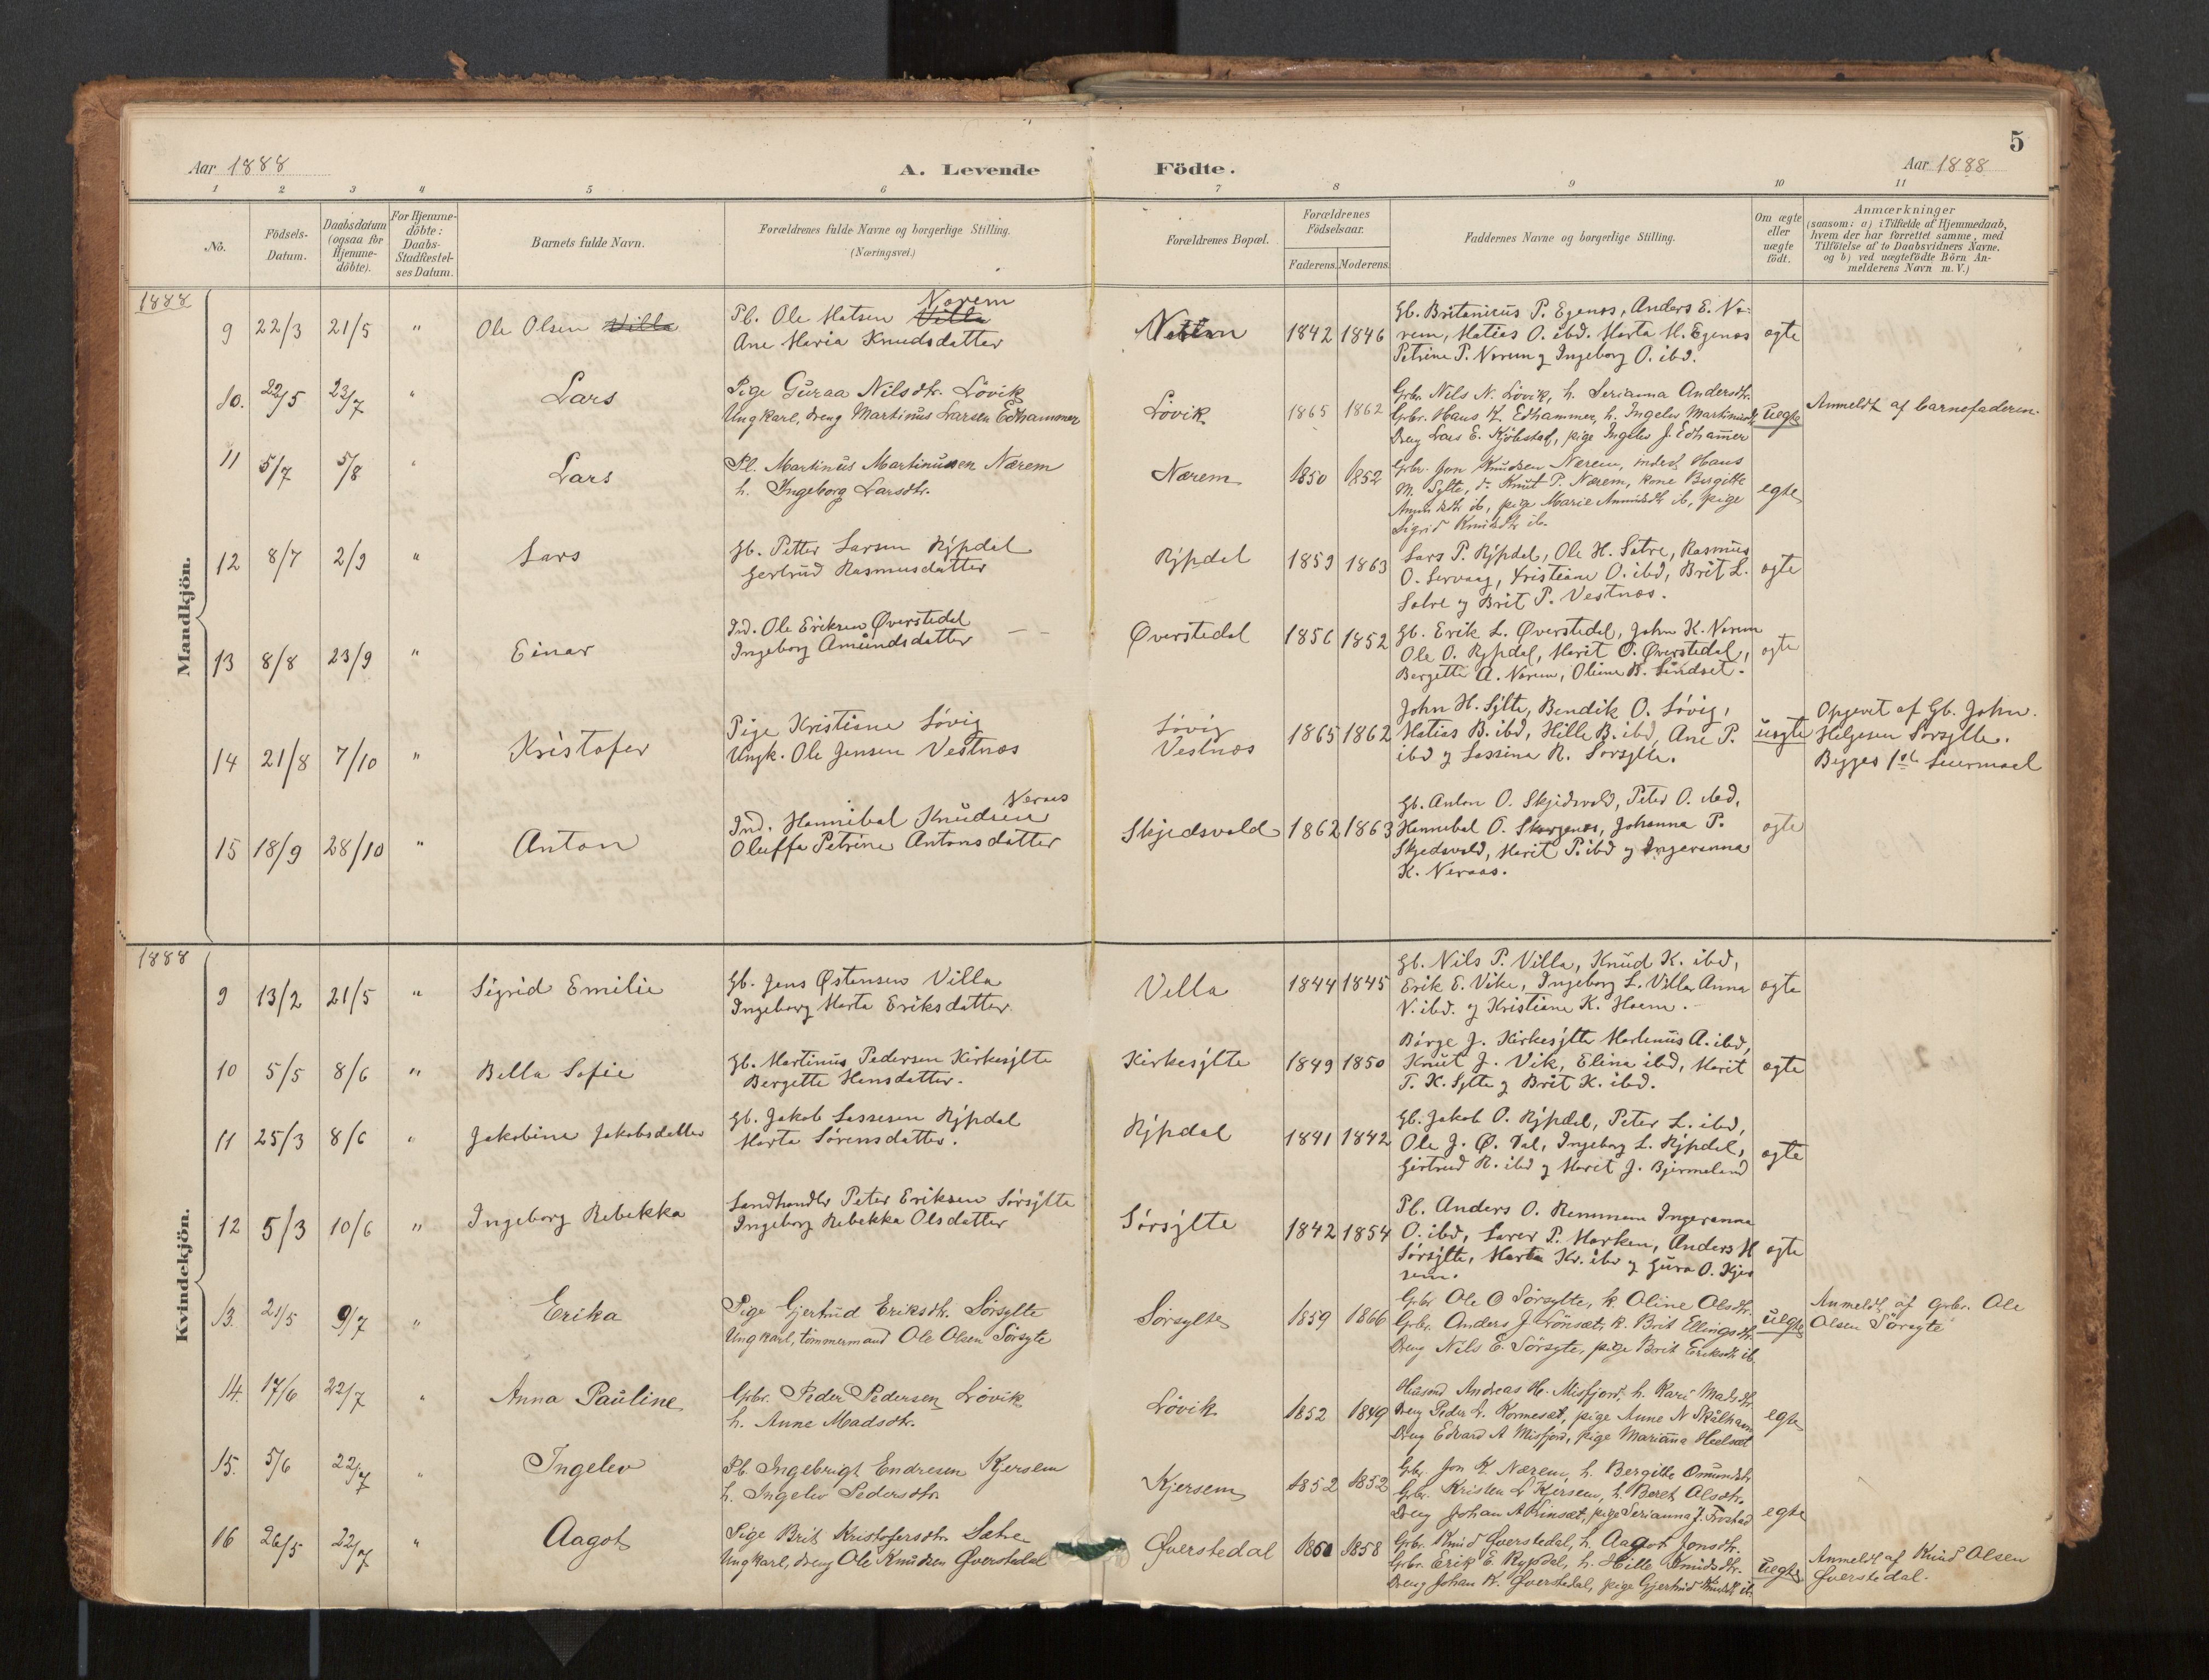 5
Aar 1888
A. Levende
Födte.
Aar 1888
1 2 3 4 5 6 7 8 9 10 11
No.
Födsels-
Datum.
Daabsdatum
(ogsaa for
Hjemme-
döbte).
For Hjemme-
döbte:
Daabs-
Stadfæstel-
ses Datum.
Barnets fulde Navn.
Forældrenes fulde Navne og borgerlige Stilling.
(Næringsvei.)
Forældrenes Bopæl.
Forældrenes
Födselsaar.
Faderens. Moderens.
Faddernes Navne og borgerlige Stilling.
Om ægte
eller
uægte
födt.
Anmærkninger
(saasom: a) i Tilfælde af Hjemmedaab,
hvem der har forrettet samme, med
Tilföielse af to Daabsvidners Navne.
og b) ved uægtefödte Börn An-
melderens Navn m. V.)
Mandkjön.
1888
9 22/3 21/5 " Ole Olsen Villa
Norem
Pl. Ole Matsen Villa
Ane Maria Knudsdatter
1842 1846
Gb. Britanicus P. Egenos, Anders E. No-
rem, Matias O. ibd. Marta M. Egenos
Petrine P. Norem og Ingeborg O. ibd.
ægte
10. 22/5 22/7 " Lars
Pige Guraa Nilsdtr. Lövik
Ungkarl, dreng Martinus Larsen Edhammer
Lövik 1865 1862
Gbr. Nils N. Lövik, h. Serianna Andersdtr.
Gbr. Hans K. Edhammer, h. Ingelev Martinusdtr
Dreng Lars E. Kjölstad, pige Ingelev J. Edhammer
uegte
Anmeldt af barnefaderen.
11 5/7 5/8 " Lars
Pl. Martinus Martinussen Nærem
h. Ingeborg Larsdtr.
Nærem 1850 1852
Gbr. Jon Knudsen Nærem, inderst Hans
M. Sylte, d. Knut P. Nærem, kone Birgitte
Amundsdtr ib, pige Marie Amundsdtr ib, pige
Sigrid Knudsdtr ib.
egte
12 8/7 2/9 " Lars
Gb. Petter Larsen Rÿpdal
Gertrud Rasmusdatter
Rÿpdal 1859 1863
Lars P. Rÿpdal, Ole H. Satre, Rasmus
O. Servaag, Kristiane O. ibd, Brit L.
Satre og Brit P. Vestnos.
ægte
13 8/8 23/9 " Einar
Ind. Ole Eriksen Øverstedal
Ingeborg Amundsdatter
Øverstedal 1856 1852
Gb. Erik L. Øverstedal, John K. Norem
Ole O. Rÿpdal, Marit O. Øverstedal,
Bergette A. Norem, Oline B. Lindset.
ægte
14 21/8 7/10 " Kristofer
Pige Kristine Løvig
Ungk. Ole Jensen Vestnos
Løvig
Vestnos
1865 1862
John H. Sÿlte, Bendik O. Løvig,
Matias B. ibd, Hille B. ibd, Ane P.
ibd og Lassina R. Sorsÿlte.
uægte
Opgivet af Gb. John
Helgesen Sorsÿlte.
Begges 1ste Leiermaal
15 18/9 28/10 " Anton
Neraas
Ind. Hannibal Knudsen
Oluffa Petrine Antonsdatter
Skjedsvold 1862 1863
Gb. Anton O. Skjedsvold, Peter O. ibd,
Hannibal O. Skorgenos, Johanna P.
Skjedsvold, Marit P. ibd og Ingeranna
K. Neraas.
ægte
Kvindekjön.
1888
9 13/2 21/5 " Sigrid Emilie
Gb. Jens Østensen Villa
Ingeborg Marta Eriksdatter
Villa 1844 1845
Gb. Nils P. Villa, Knud K. ibd,
Erik E. Vike, Ingeborg L. Villa Anna
N. ibd. og Kristiane K. Haem.
ægte
10 5/5 8/6 " Bella Sofie
Gb. Martinus Pedersen Kirkesÿlte
Bergette Hansdatter.
Kirkesÿlte 1849 1850
Børge J. Kirkesÿlte Martinus A. ibd,
Knut J. Vik, Elina ibd, Marit
T. K. Sÿlte og Brit K. ibd.
ægte
11 25/3 8/6 " Jakobine Jakobsdatter
Gb. Jakob Lassesen Rÿpdal
Marta Sørensdatter.
Rÿpdal 1841 1842
Gb. Jakob O. Rÿpdal, Peter L. ibd,
Ole J. Ø. Dal, Ingeborg L. Rÿpdal,
Gertrud R. ibd og Marit J. Bjermeland
ægte
12 5/3 10/6 " Ingeborg Rebekka
Landhandler Peter Eriksen Sørsÿlte
Ingeborg Rebekka Olsdatter
Sørsÿlte 1842 1854
Pl. Anders O. Remmem Ingeranna
O. ibd, Laver P. Marken, Anders H
Sørsÿlte, Marta Kr. ibd og Gura O. Kjer
sem.
ægte
13. 21/5 9/7 " Erika
Pige Gjertrud Eriksdtr. Sørsylte
Ungkarl, tømmermand Ole Olsen Sørsyte
Sørsylte 1859 1866
Gbr. Ole O Sørsylte, k. Oline Olsdtr.
Gbr. Anders J. Lönsæt, k. Brit Ellingsdtr.
Dreng Nils E. Sørsyte, pige Brit Eriksdtr ib.
uegte
Anmeldt af Gbr. Ole
Olsen Sørsyte
14. 17/6 22/7 " Anna Pauline
Gbr. Peder Pedersen Lövik
h. Anne Madsdtr.
Lövik 1852 1849
Husmd Andreas H. Misfjord, h. Kari Madsdtr.
Dreng Peder L. Kormeset, pige Anne N Skålhamn
Dreng Edvard A Misfjord, pige Marianna Helset
egte
15. 5/6 22/7 " Ingelev
Pl. Ingebrigt Endresen Kjersem
h. Ingelev Pedersdtr.
Kjersem 1852 1852
Gbr. Jon K Nærem, h. Bergitte Omundsdtr
Gbr. Kristen L Kjersem, h. Beret Olsdtr.
Dreng Johan A Rinset, pige Serianna J. Frostad
egte
16 26/5 22/7 " Aagot
Pige Brit Kristofersdtr. Sætre
Ungkarl, dreng Ole Knudsen Øverstedal
Øverstedal 1860 1858
Gbr. Knud Øverstedal, h. Aagot Jonsdtr.
Gbr. Erik E. Rypdal, h. Hille Knudsdtr.
Dreng Johan K. Øverstedal, pige Gjertrud Knudsdtr ib.
uegte
Anmeldt af Knud Olsen
Øverstedal.